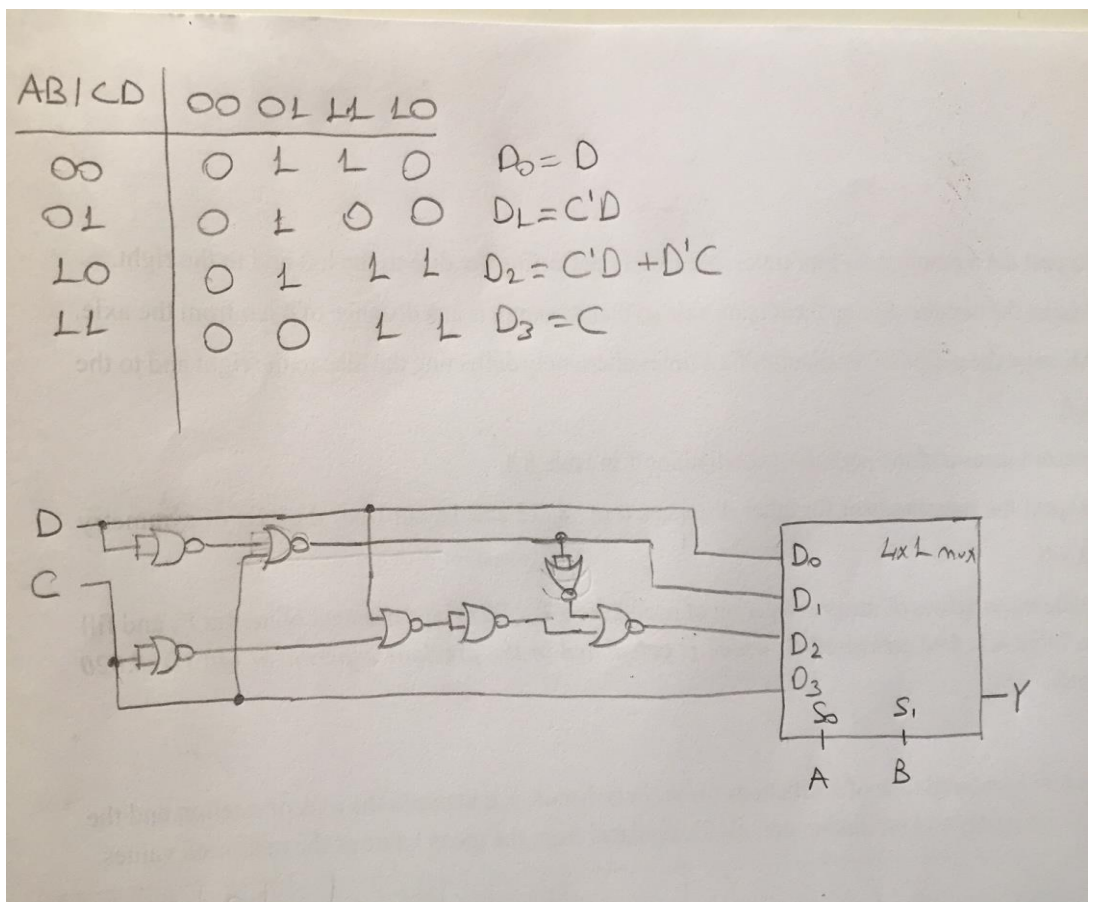 AB/CD 00 01 11 10
00 0 1 1 0 D0 = D
01 0 1 0 0 D1 = C'D
10 0 1 1 1 D2 = C'D + D'C
11 0 0 1 1 D3 = C
D
C
D0 4x1 mux
D1
D2
D3
S0 S1
Y
A B